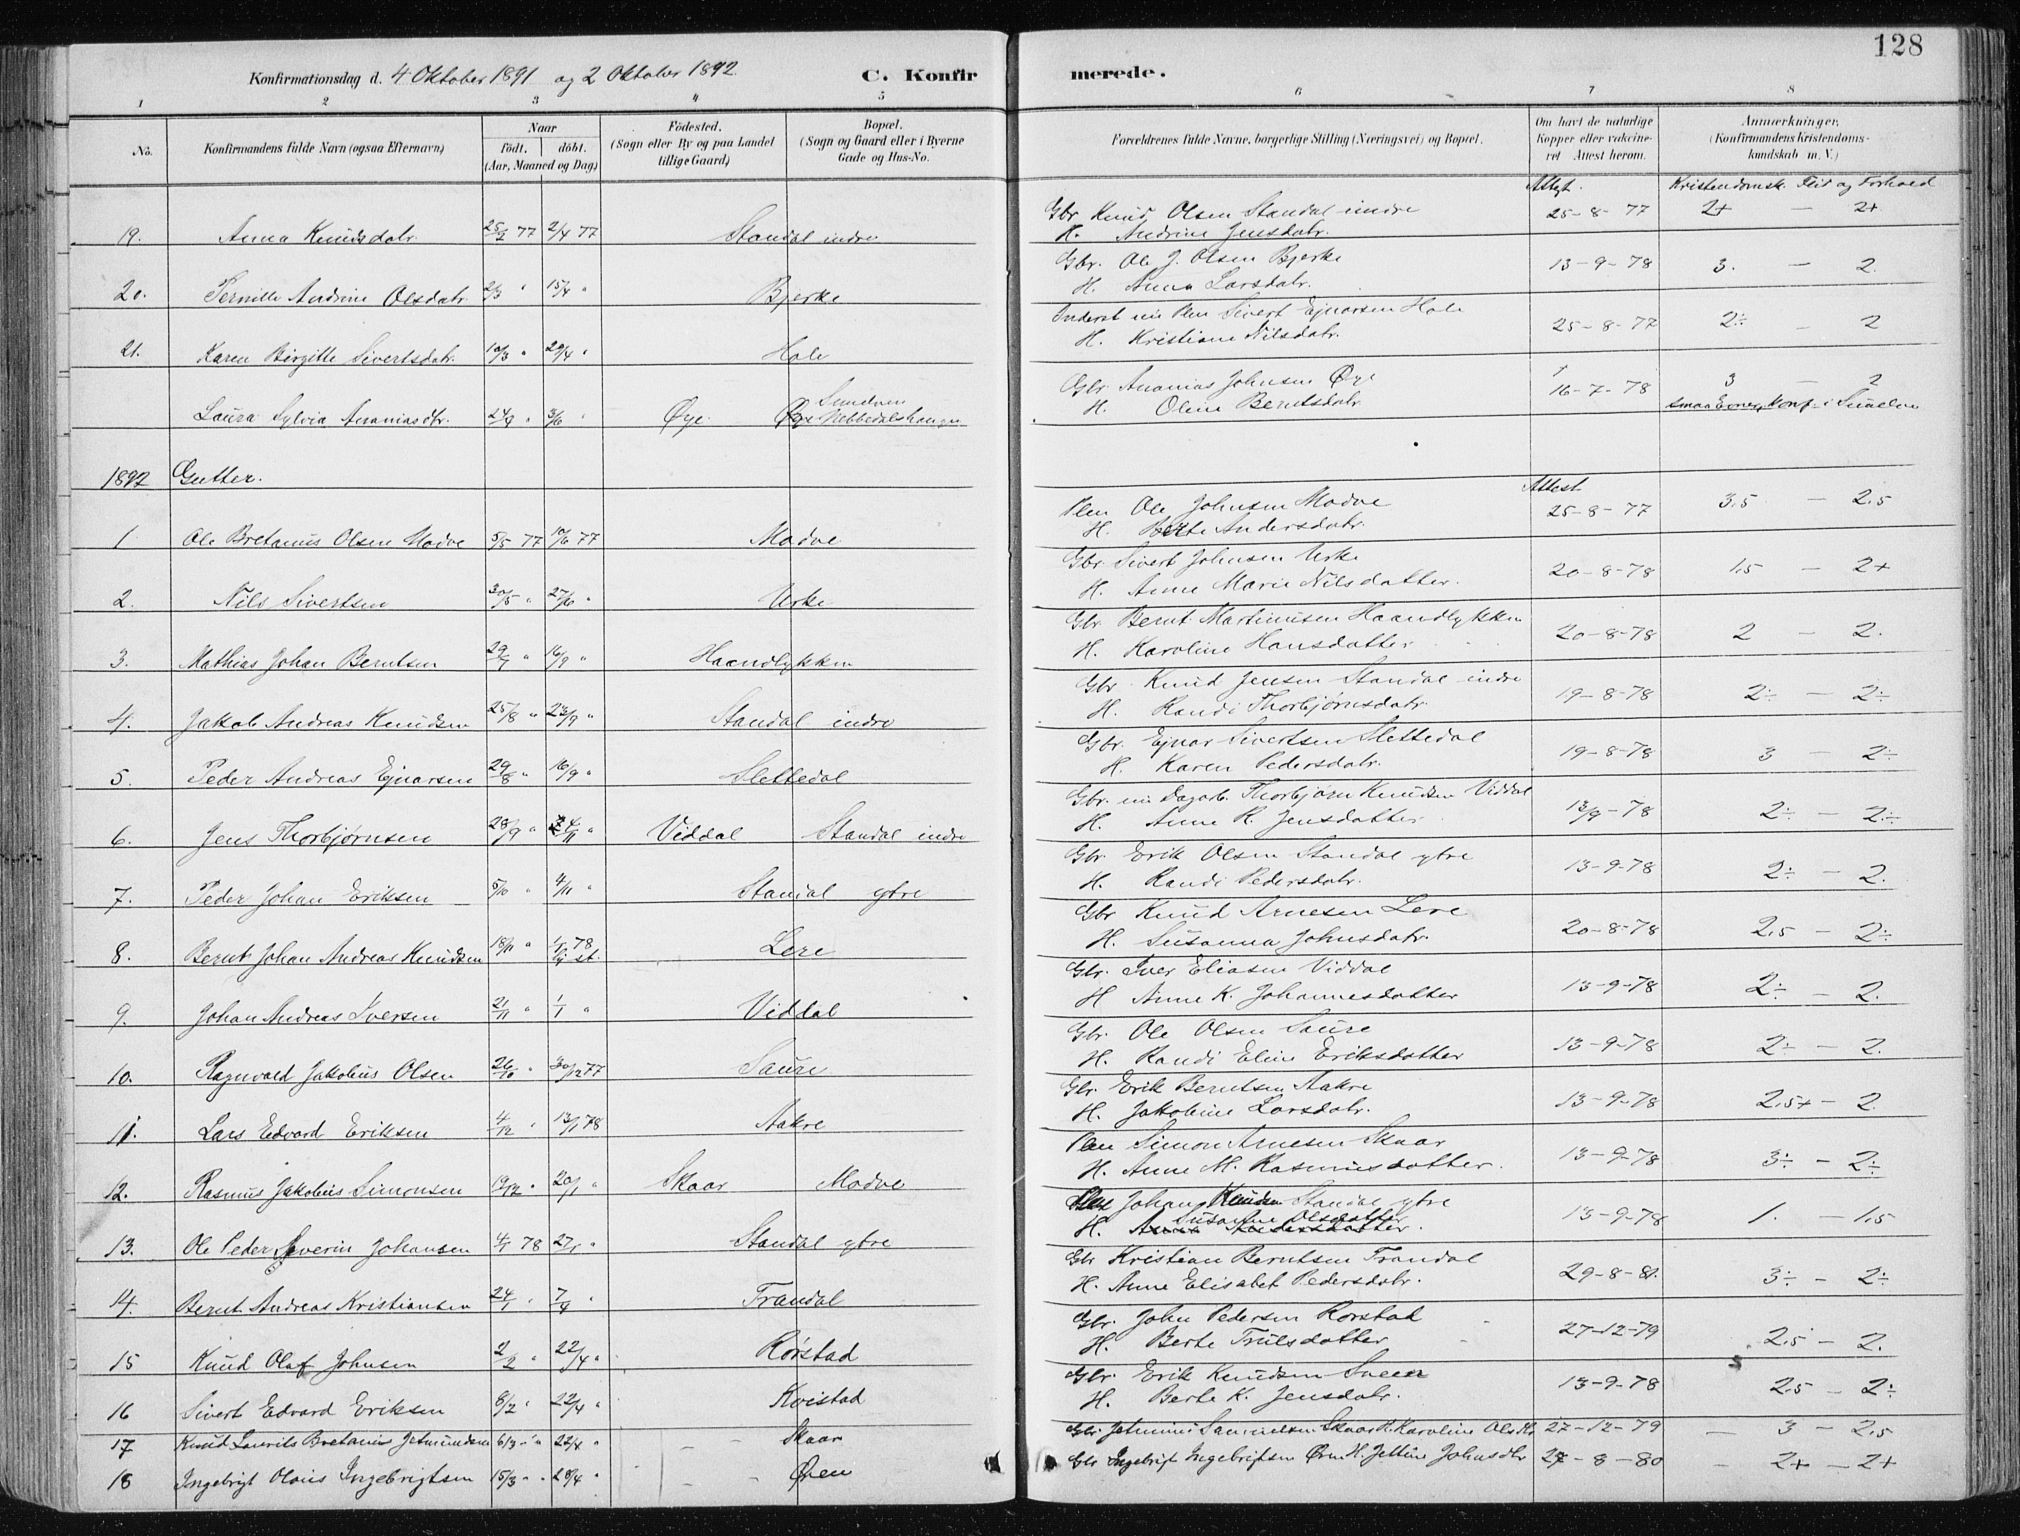 128
Konfirmationsdag d. 4 Oktober 1891 og 2 Oktober 1892
C. Konfirmerede.
1 2 3 4 5 6 7 8
No. Konfirmandens fulde Navn (ogsaa Efternavn) Naar født. døbt. (Aar, Maaned og Dag) Fødested. (Sogn eller By og paa Landet tillige Gaard) Bopæl. (Sogn og Gaard eller i Byerne Gade og Hus-No. Forældrenes fulde Navne, borgerlige Stilling (Næringsvei) og Bopæl. Om havt de naturlige Kopper eller vakcineret Attest herom. Anmærkninger, (Konfirmandens Kristendomskundskab m. V.)
Attest. Kristendomsk. Flid og Forhold
19. Anna Knudsdatr. 25/2 77 2/4 77 Standal indre Gbr Knud Olsen Standal indre H. Andrine Jensdatr. 25-8-77 2+ - 2+
20. Pernille Andrine Olsdatr. 2/3 " 15/4 " Bjerke Gbr. Ole J. Olsen Bjerke H. Anna Larsdatr. 13-9-78 3. - 2.
21. Karen Birgitte Sivertsdatr. 10/3 " 29/4 " Hole Inderst Sivert Ejnarsen Hole H. Kristiane Nilsdatr. 25-8-77 2÷ - 2
Laura Sylvia Ananiasdtr. 24/4 " 3/6 Øye Øye Gbr Ananias Johnsen Øye H. Oline Berntsdatr. 16-7-78 3 - 2
1892 Gutter.
Attest
1 Ole Bretanus Olsen Modve 5/5 77 10/6 77 Modve Plm Ole Johnsen Modve H. Berte Andersdatr. 25-8-77 3.5 - 2.5
2. Nils Sivertsen 30/5 " 27/6 " Urke Gbr Sivert Johnsen Urke H. Anne Marie Nilsdatter. 20-8-78 1,5 - 2+
3. Mathias Johan Berntsen 29/7 " 16/9 " Haandlykken Gbr Bernt Martinusen Haandlykken H. Karoline Hansdatter 20-8-78 2 - 2.
4. Jakob Andreas Knudsen 25/8 " 23/9 " Standal indre Gbr Knud Jensen Standal indre H. Randi Thorbjørnsdatr. 19-8-78 2÷ - 2÷
5. Peder Andreas Ejnarsen 29/8 " 16/9 " Slettedal Gbr. Ejnar Sivertsen Slettedal H. Karen Pedersdatr. 19-8-78 3 - 2÷
6. Jens Thorbjørnsen 28/9 " 4/11 " Viddal Standal indre Gbr. Thorbjørn Knudsen Viddal H. Anne K. Jensdatter 13/9-78 2÷ - 2÷
7. Peder Johan Eriksen 5/10 " 4/11 " Standal ytre Gbr Erik Olsen Standal ytre H. Randi Pedersdatr. 13-9-78 2÷ - 2.
8. Bernt Johan Andreas Knudsen 18/11 " 78 Lere Gbr Knud Arnesen Lere H. Susanna Johnsdatr. 20-8-78 2,5 - 2÷
9. Johan Andreas Iversen 21/11 " 1/1 " Viddal Gbr. Iver Eliasen Viddal H Anne K. Johannesdatter 13-9-78 2÷ - 2.
10. Ragnvald Jakobius Olsen 26/10 " 30/12 77 Saure Gbr. Ole Olsen Saure H. Randi Eline Eriksdatter 13-9-78 2÷ - 2.
11. Lars Edvard Eriksen 4/12 " 13/1 78 Aakre Gbr. Erik Berntsen Aakre H. Jakobine Larsdatr. 13-9-78 2.5+ - 2.
12. Rasmus Jakobius Simonsen 19/12 " 20/1 " Skaar Modve Plm Simon Arnesen Skaar H. Anne M. Rasmusdatter. 13-9-78 3÷ - 2÷
13. Ole Peder Severin Johansen 4/1 78 27/1 " Standal ytre Johan Knudsen Standal ytre H. Susanne Olsdatter 13-9-78 1. - 1,5
14. Bernt Andreas Kristiansen 24/1 " 7/4 " Trandal Gbr Kristian Berntsen Trandal H. Anne Elisabet Pedersdatr. 29-8-81. 3÷ - 2÷
15 Knud Olaf Johnsen 2/2 " 22/4 " Rørstad Gbr. John Pedersen Rørstad H. Berte Trulsdatter 27-12-79 2.5 - 2.
16 Sivert Edvard Eriksen 8/2 " 22/4 " Kvistad Gbr. Erik Knudsen H. Berte K. Jensdatr. 13-9-78 2.5 - 2÷
17 Knud Laurits Bretanius Jetmundsen 6/3 " 22/4 " Skaar Gbr. Jetmund Samuelsen Skaar H. Karoline Olsdtr 27-12-79 - 3 - 2.5
18 Ingebrigt Olaus Ingebrigtsen 15/3 " 28/4 " Øren Gbr Ingebrigt Ingebrigtsen Øren H. Jettine Johnsdtr 27-8-80 - 2+ - 2+